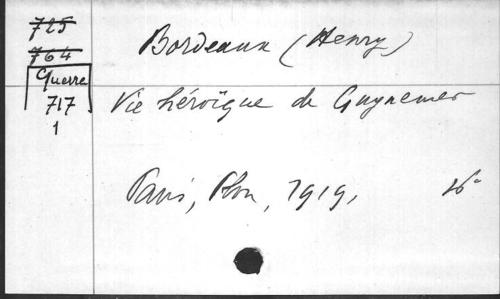 725
764
Guerre
717
1
Bordeaux (Henry)
Vie héroïque de Guynemer
Paris, Plon, 1919, 16°